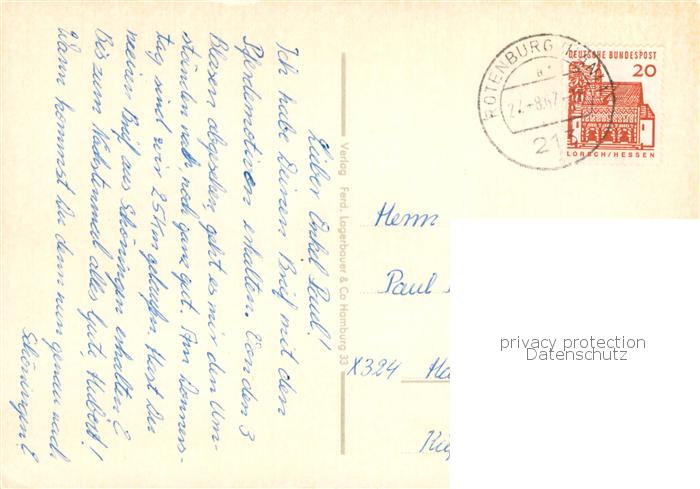 Lieber Onkel Paul!
Ich habe Deinen Brief mit den
Pferdemotiven erhalten. Von den 3
Blasen abgesehen, geht es mir den Um-
ständen nach noch ganz gut. Am Donners-
tag sind wir 25 km gelaufen. Hast Du
meinen Brief aus Schöningen erhalten?
Bis zum Nächstenmal alles Gute Hubert!
Wann kommst Du denn nun genau nach
Schöningen?
Verlag Ferd. Lagerbauer & Co Hamburg 33
ROTENBURG
22.-8.67
213
DEUTSCHE BUNDESPOST
20
LORSCH/HESSEN
Herrn
Paul
X324
privacy protection
Datenschutz